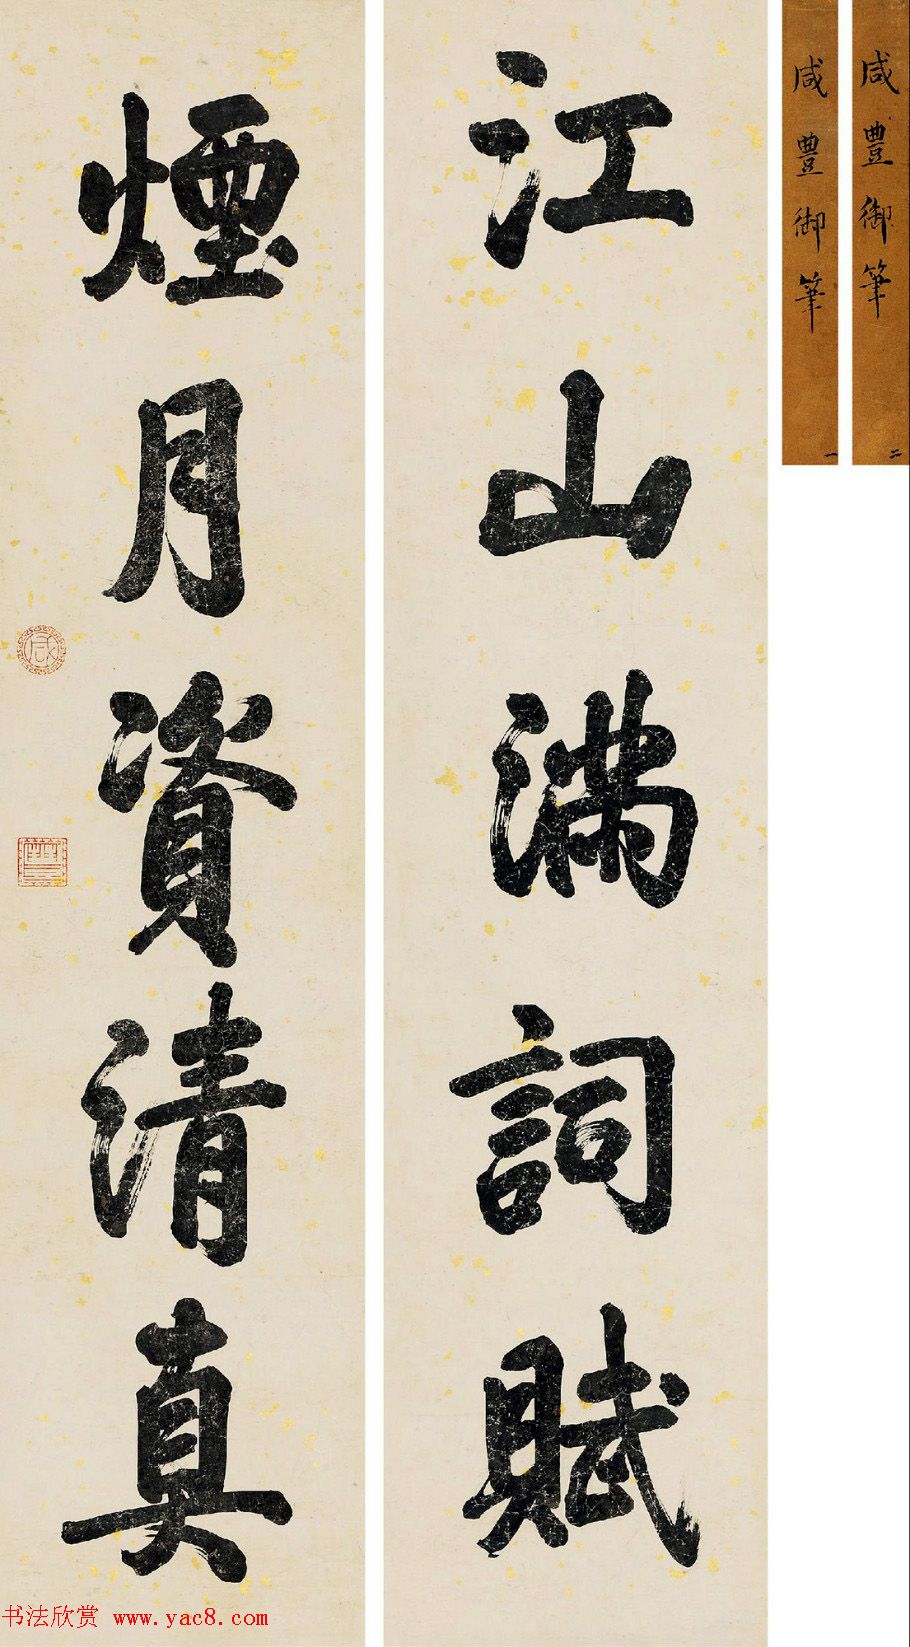 江山满詞賦
煙月資清真
咸豊御筆
二
咸豊御筆
一
咸
豐
书法欣赏 www.yac8.com